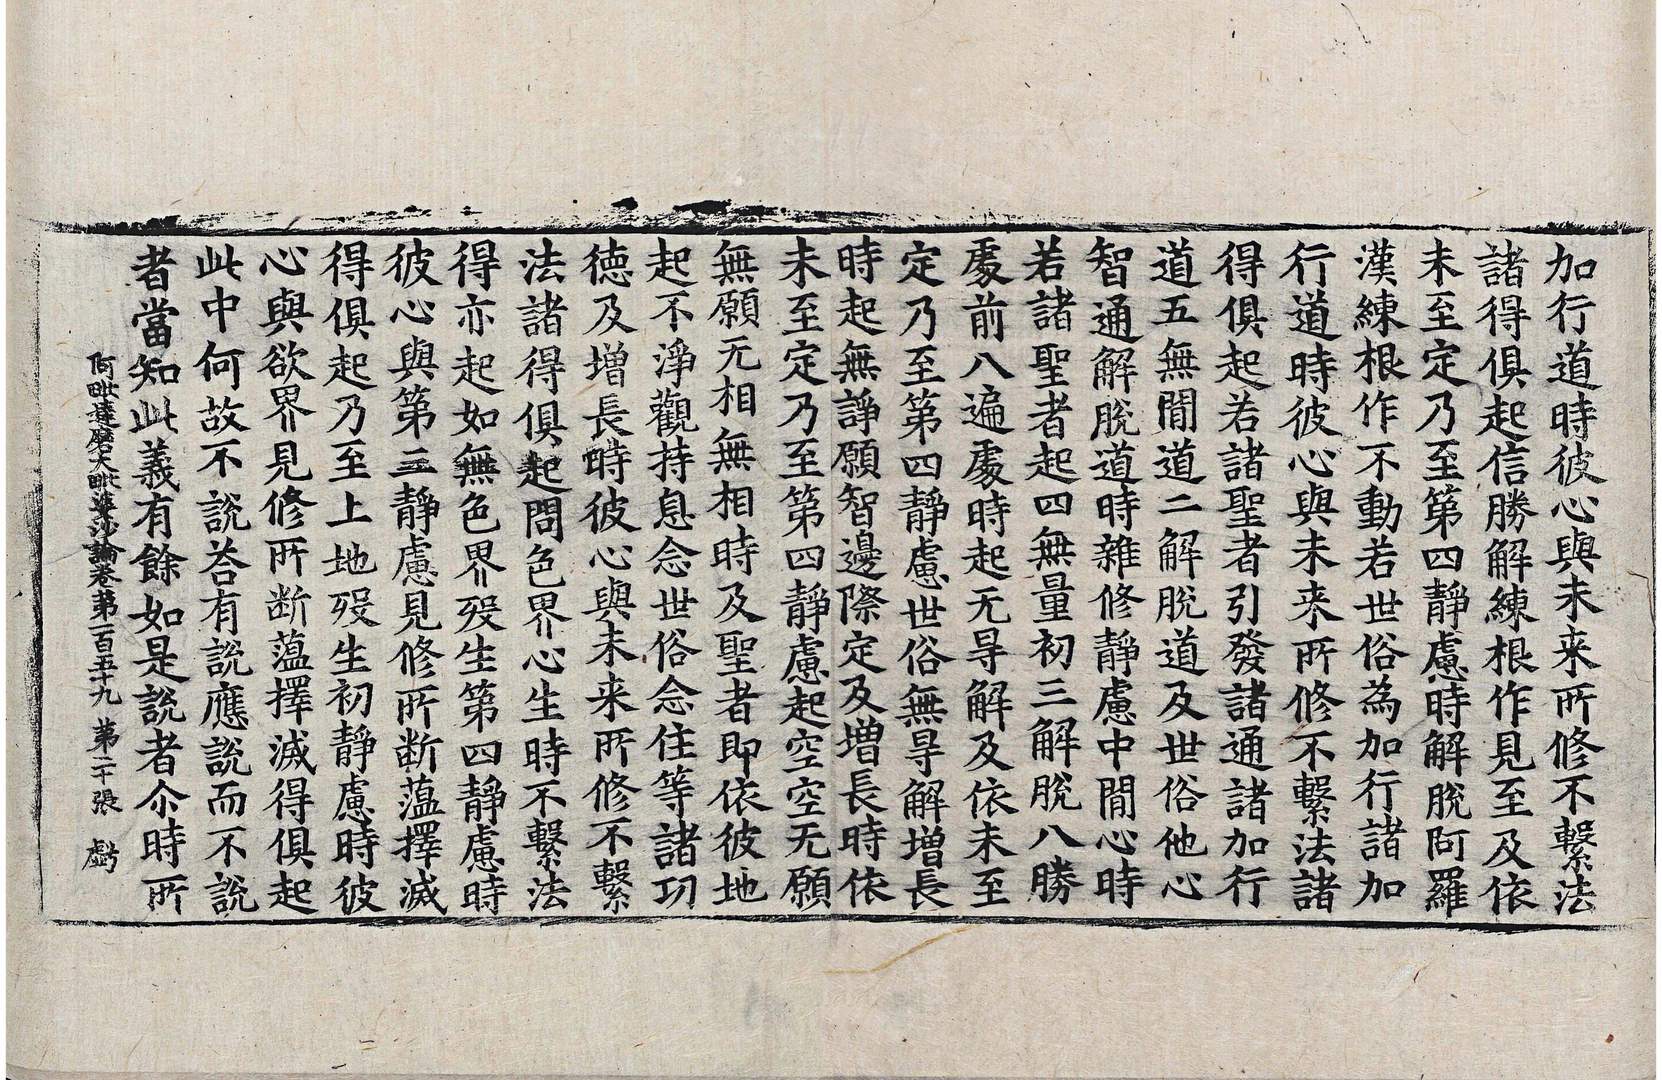 加行道時彼心與未来所修不繫法
諸得俱起信勝解練根作見至及依
未至定乃至第四靜慮時解脫阿羅
漢練根作不動若世俗為加行諸加
行道時彼心與未来所修不繫法諸
得俱起若諸聖者引發諸通諸加行
道五無間道二解脫道及世俗他心
智通解脫道時雜修靜慮中間心時
若諸聖者起四無量初三解脫八勝
處前八遍處時起无㝵解及依未至
定乃至第四靜慮世俗無㝵解增長
時起無諍願智邊際定及增長時依
未至定乃至第四靜慮起空空无願
無願无相無相時及聖者即依彼地
起不淨觀持息念世俗念住等諸功
德及增長時彼心與未来所修不繫
法諸得俱起問色界心生時不繫法
得亦起如無色界歿生第四靜慮時
彼心與第三靜慮見修所断薀擇滅
得俱起乃至上地歿生初靜慮時彼
心與欲界見修所断薀擇滅得俱起
此中何故不說荅有說應說而不說
者當知此義有餘如是說者尒時所
阿毗達磨大毗婆沙論卷第一百五十九 第二十張 虧